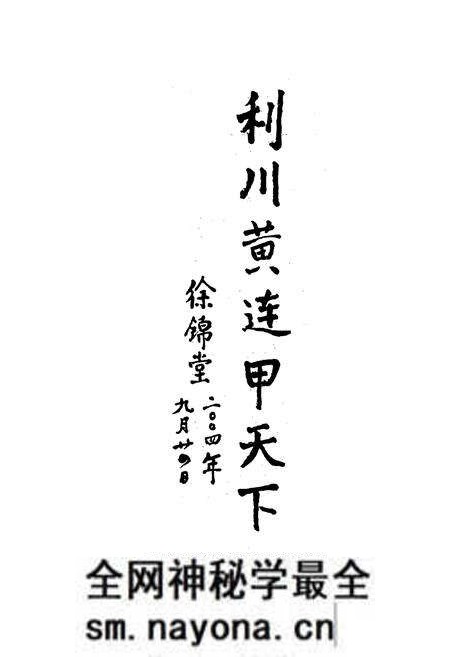 利川黄连甲天下
徐锦堂
二〇〇四年
九月廿四日
全网神秘学最全
sm.nayona.cn